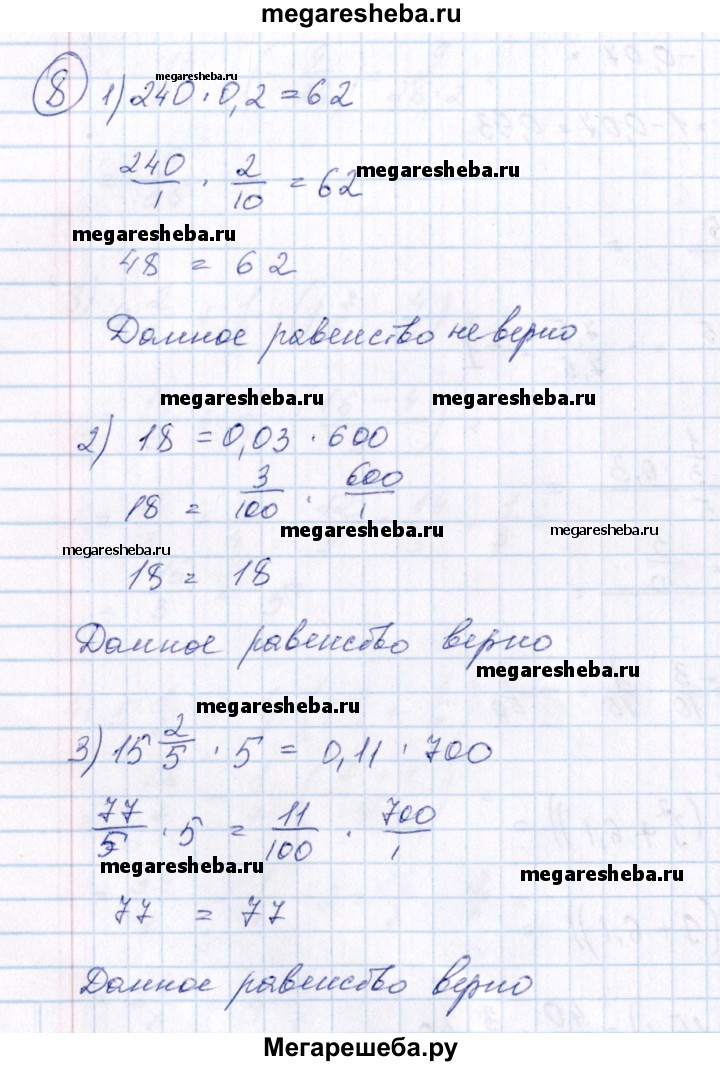 megaresheba.ru
8 1) 240 · 0,2 = 62
megaresheba.ru
240/1 · 2/10 = 62
megaresheba.ru
megaresheba.ru
48 = 62
Данное равенство не верно
megaresheba.ru megaresheba.ru
2) 18 = 0,03 · 600
18 = 3/100 · 600/1
megaresheba.ru megaresheba.ru
megaresheba.ru
18 = 18
Данное равенство верно
megaresheba.ru
megaresheba.ru
3) 15 2/5 · 5 = 0,11 · 700
77/5 · 5 = 11/100 · 700/1
megaresheba.ru megaresheba.ru
77 = 77
Данное равенство верно
Мегарешеба.ру